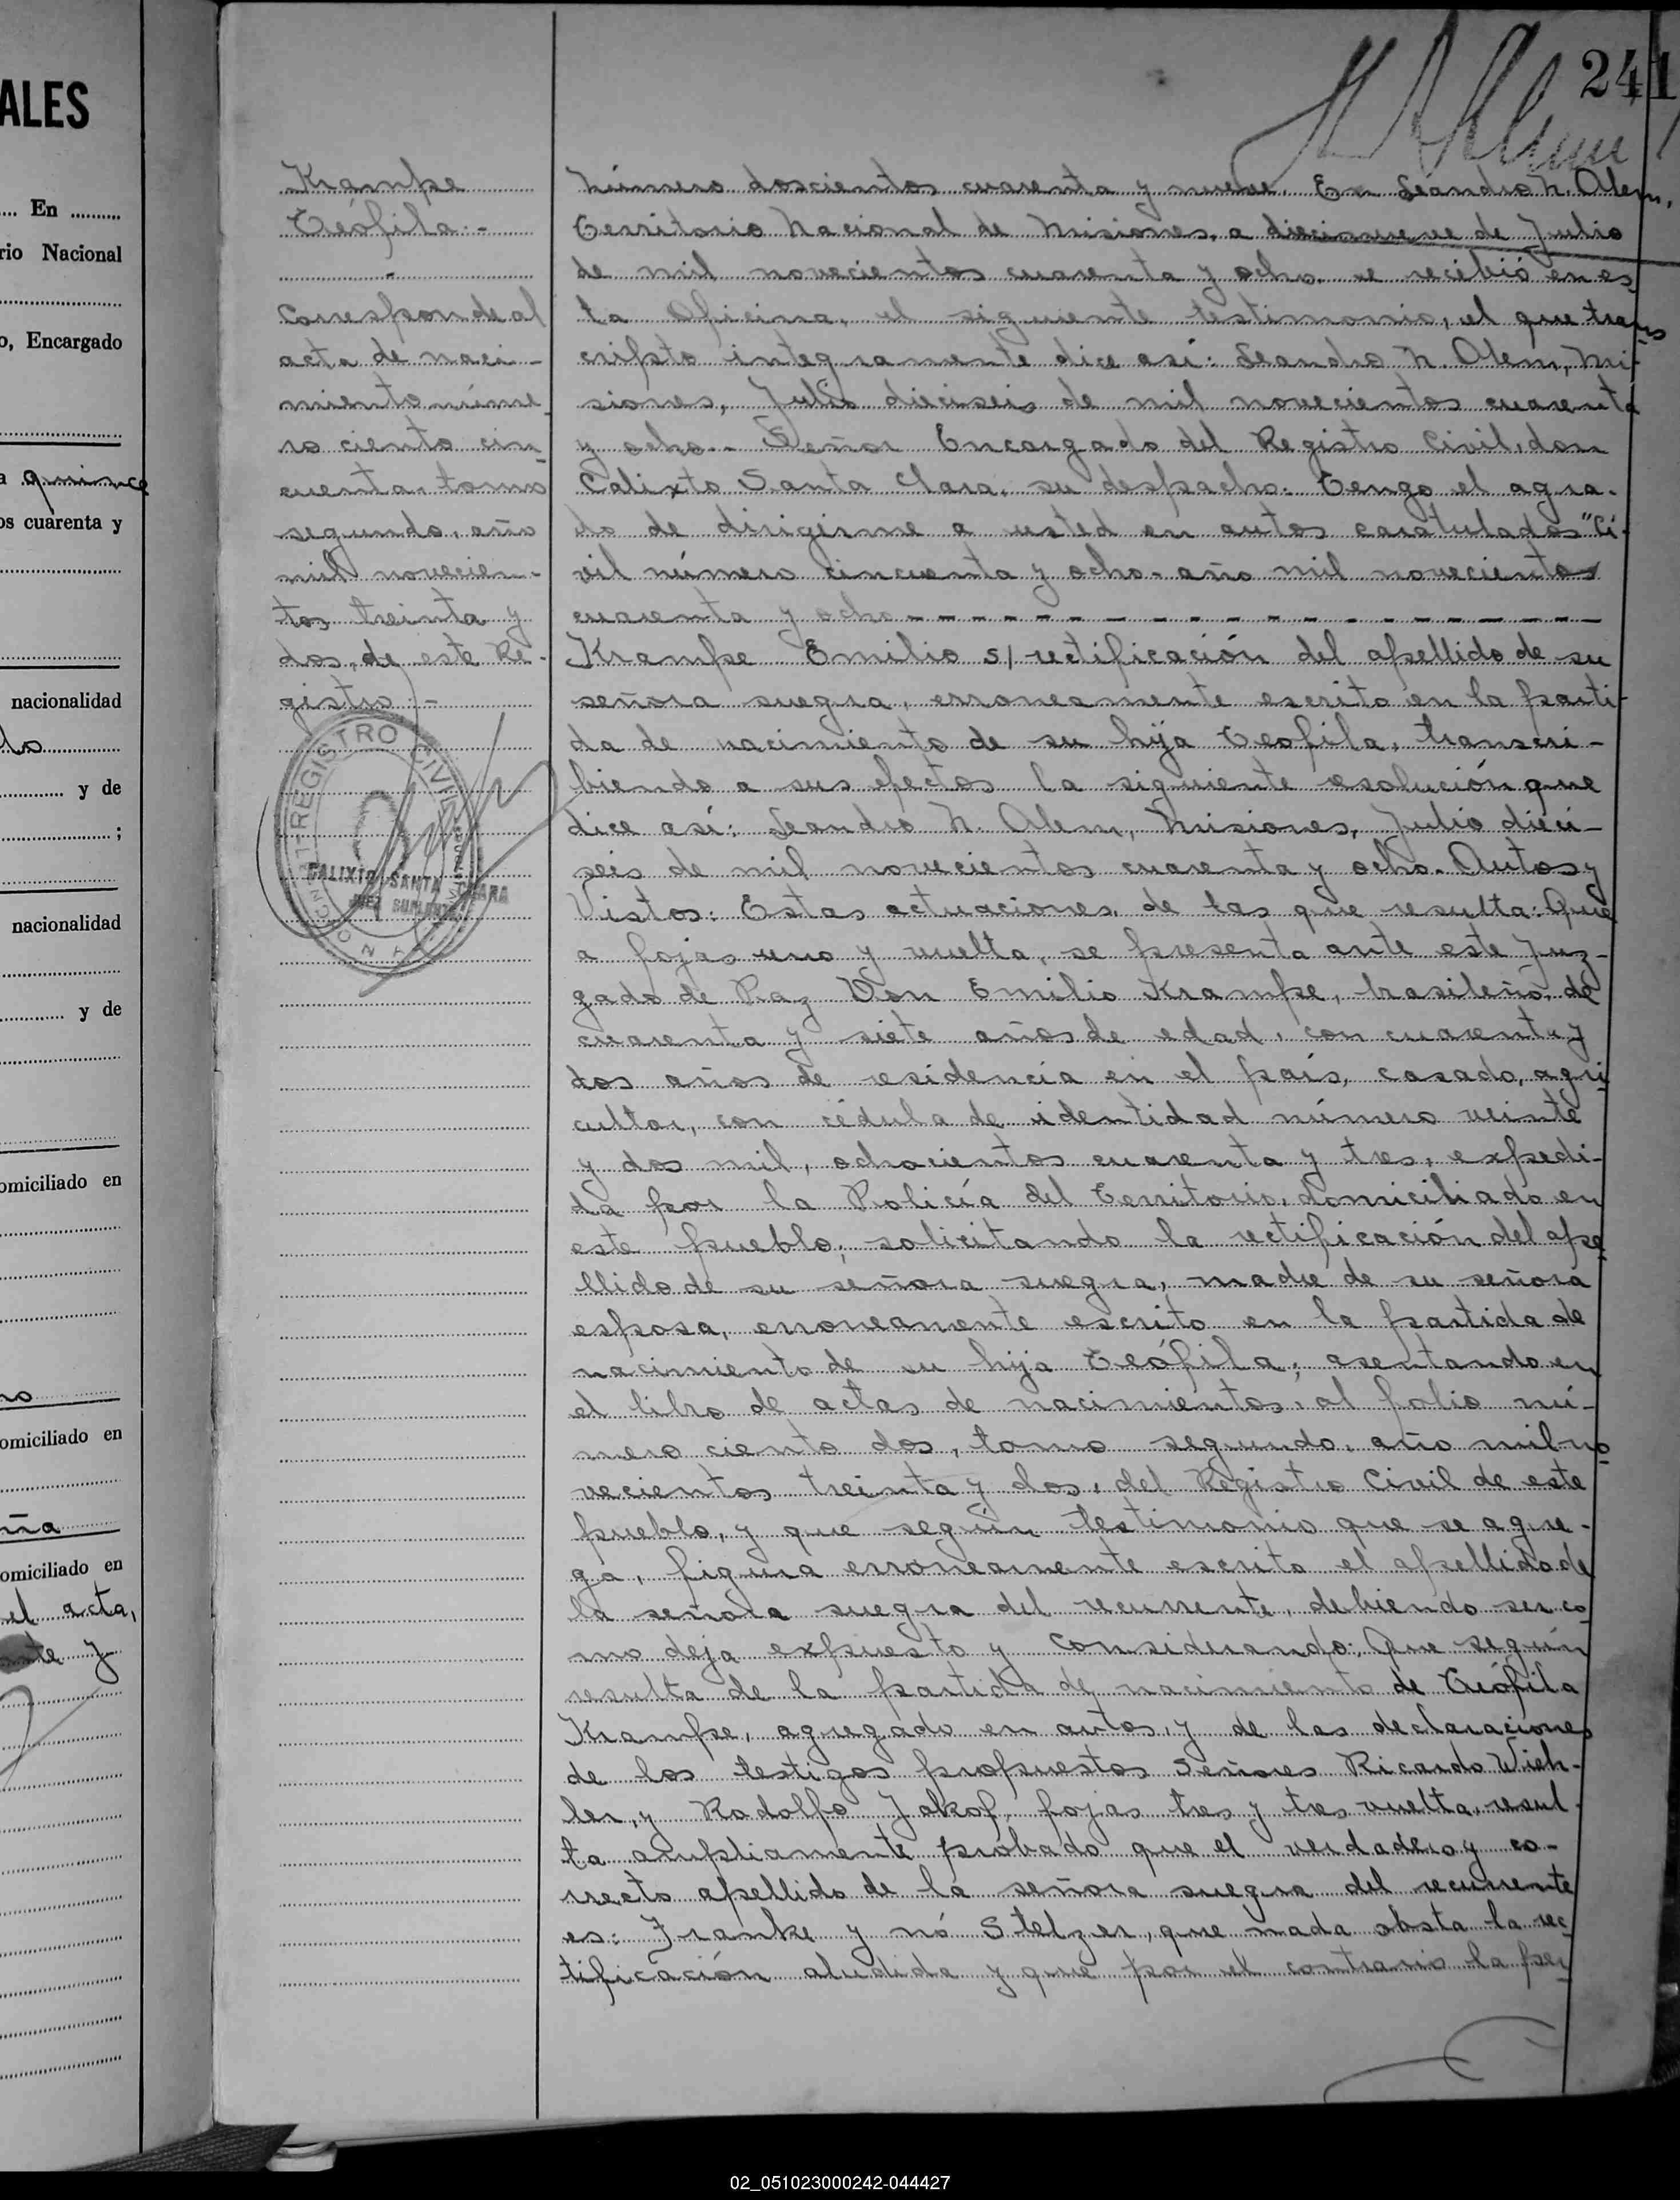 ALES
En
rio Nacional
o, Encargado
a quince
os cuarenta y
nacionalidad
lo
y de
;
nacionalidad
y de
omiciliado en
no
omiciliado en
ña
omiciliado en
el acta,
y
241
Krampe
Teófila.-
Corresponde al
acta de naci-
miento núme-
ro ciento cin-
cuenta, tomo
segundo, año
mil novecien-
tos treinta y
dos, de este Re-
gistro.-
REGISTRO CIVIL
CALIXTO SANTA CLARA
JUEZ SUPLENTE
Número doscientos cuarenta y nueve. En Leandro N. Alem,
Territorio Nacional de Misiones, a diecinueve de Julio
de mil novecientos cuarenta y ocho. se recibió en es-
ta Oficina, el siguiente testimonio, el que trans-
cripto integramente dice así: Leandro N. Alem, Mi-
siones, Julio dieciseis de mil novecientos cuarenta
y ocho.- Señor Encargado del Registro Civil, don
Calixto Santa Clara, su despacho. Tengo el agra-
do de dirigirme a usted en autos caratulados "Ci-
vil número cincuenta y ocho- año mil novecientos
cuarenta y ocho - - - - - - - - - - - - - - - - - -
Krampe Emilio s/ rectificación del apellido de su
señora suegra, erroneamente escrito en la parti-
da de nacimiento de su hija Teofila, transcri-
biendo a sus efectos la siguiente resolución que
dice así: Leandro N. Alem, Misiones, Julio dieci-
seis de mil novecientos cuarenta y ocho. Autos y
Vistos: Estas actuaciones, de las que resulta: Que
a fojas uno y vuelta, se presenta ante este Juz-
gado de Paz Don Emilio Krampe, brasileño, de
cuarenta y siete años de edad, con cuarenta y
dos años de residencia en el país, casado, agri-
cultor, con cédula de identidad número veinte
y dos mil, ochocientos cuarenta y tres, expedi-
da por la Policía del Territorio, domiciliado en
este pueblo, solicitando la rectificación del ape-
llido de su señora suegra, madre de su señora
esposa, erroneamente escrito en la partida de
nacimiento de su hija Teófila, asentando en
el libro de actas de nacimientos, al folio nú-
mero ciento dos, tomo segundo, año mil no-
vecientos treinta y dos, del Registro Civil de este
pueblo, y que según testimonio que se agre-
ga, figura erroneamente escrito el apellido de
la señora suegra del recurrente, debiendo ser co-
mo deja expuesto y Considerando: Que según
resulta de la partida de nacimiento de Teófila
Krampe, agregado en autos, y de las declaraciones
de los testigos propuestos Señores Ricardo Wieh-
ler, y Rodolfo Jakof, fojas tres y tres vuelta, resul-
ta ampliamente probado que el verdadero y co-
rrecto apellido de la señora suegra del recurrente
es: Franke y nó Stelzer, que nada obsta la rec-
tificación aludida y que por el contrario la per-
02_051023000242-044427